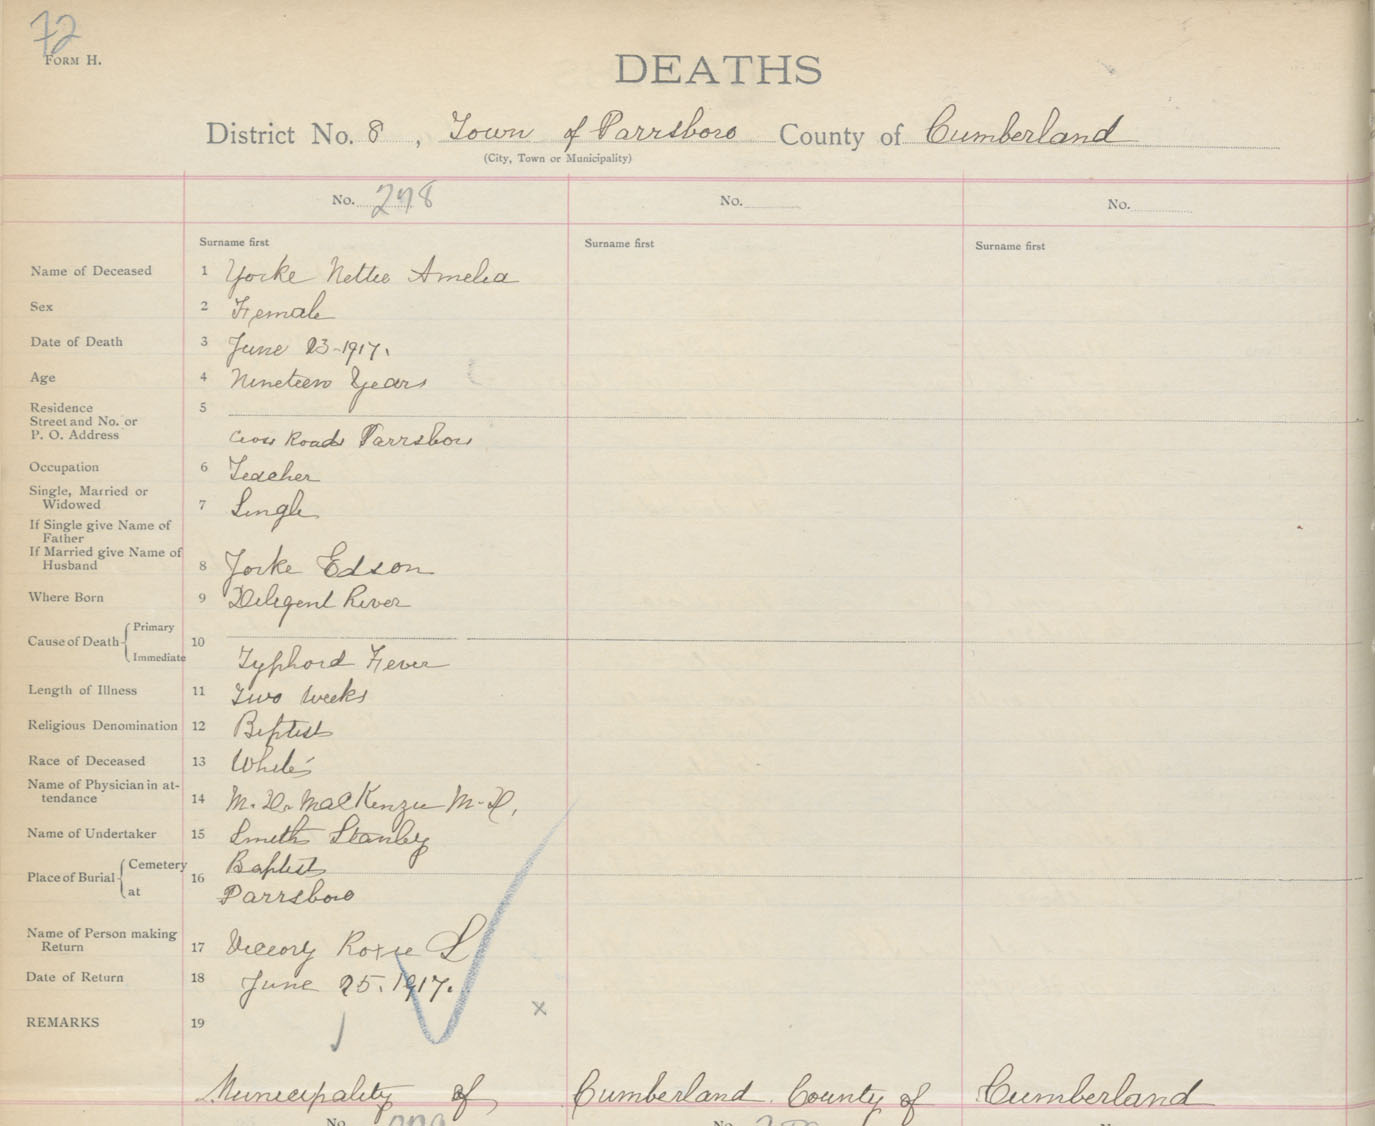 72
FORM H.
DEATHS
District No. 8, Town of Parrsboro County of Cumberland
(City, Town or Municipality)
No. 278 No. No.
Surname first Surname first Surname first
Name of Deceased 1 Yorke Nettie Amelia
Sex 2 Female
Date of Death 3 June 23-1917.
Age 4 Nineteen Years
Residence 5
Street and No. or
P. O. Address Cross Roads Parrsboro
Occupation 6 Teacher
Single, Married or
Widowed 7 Single
If Single give Name of
Father
If Married give Name of
Husband 8 Yorke Edson
Where Born 9 Diligent River
Cause of Death Primary 10
Immediate Typhoid Fever
Length of Illness 11 Two weeks
Religious Denomination 12 Baptist
Race of Deceased 13 White
Name of Physician in at-
tendance 14 M. D. MacKenzie M.D.
Name of Undertaker 15 Smith Stanley
Place of Burial Cemetery 16 Baptist
at Parrsboro
Name of Person making
Return 17 Roxie L
Date of Return 18 June 25. 1917.
REMARKS 19
x
Municipality of Cumberland County of Cumberland
No. No.